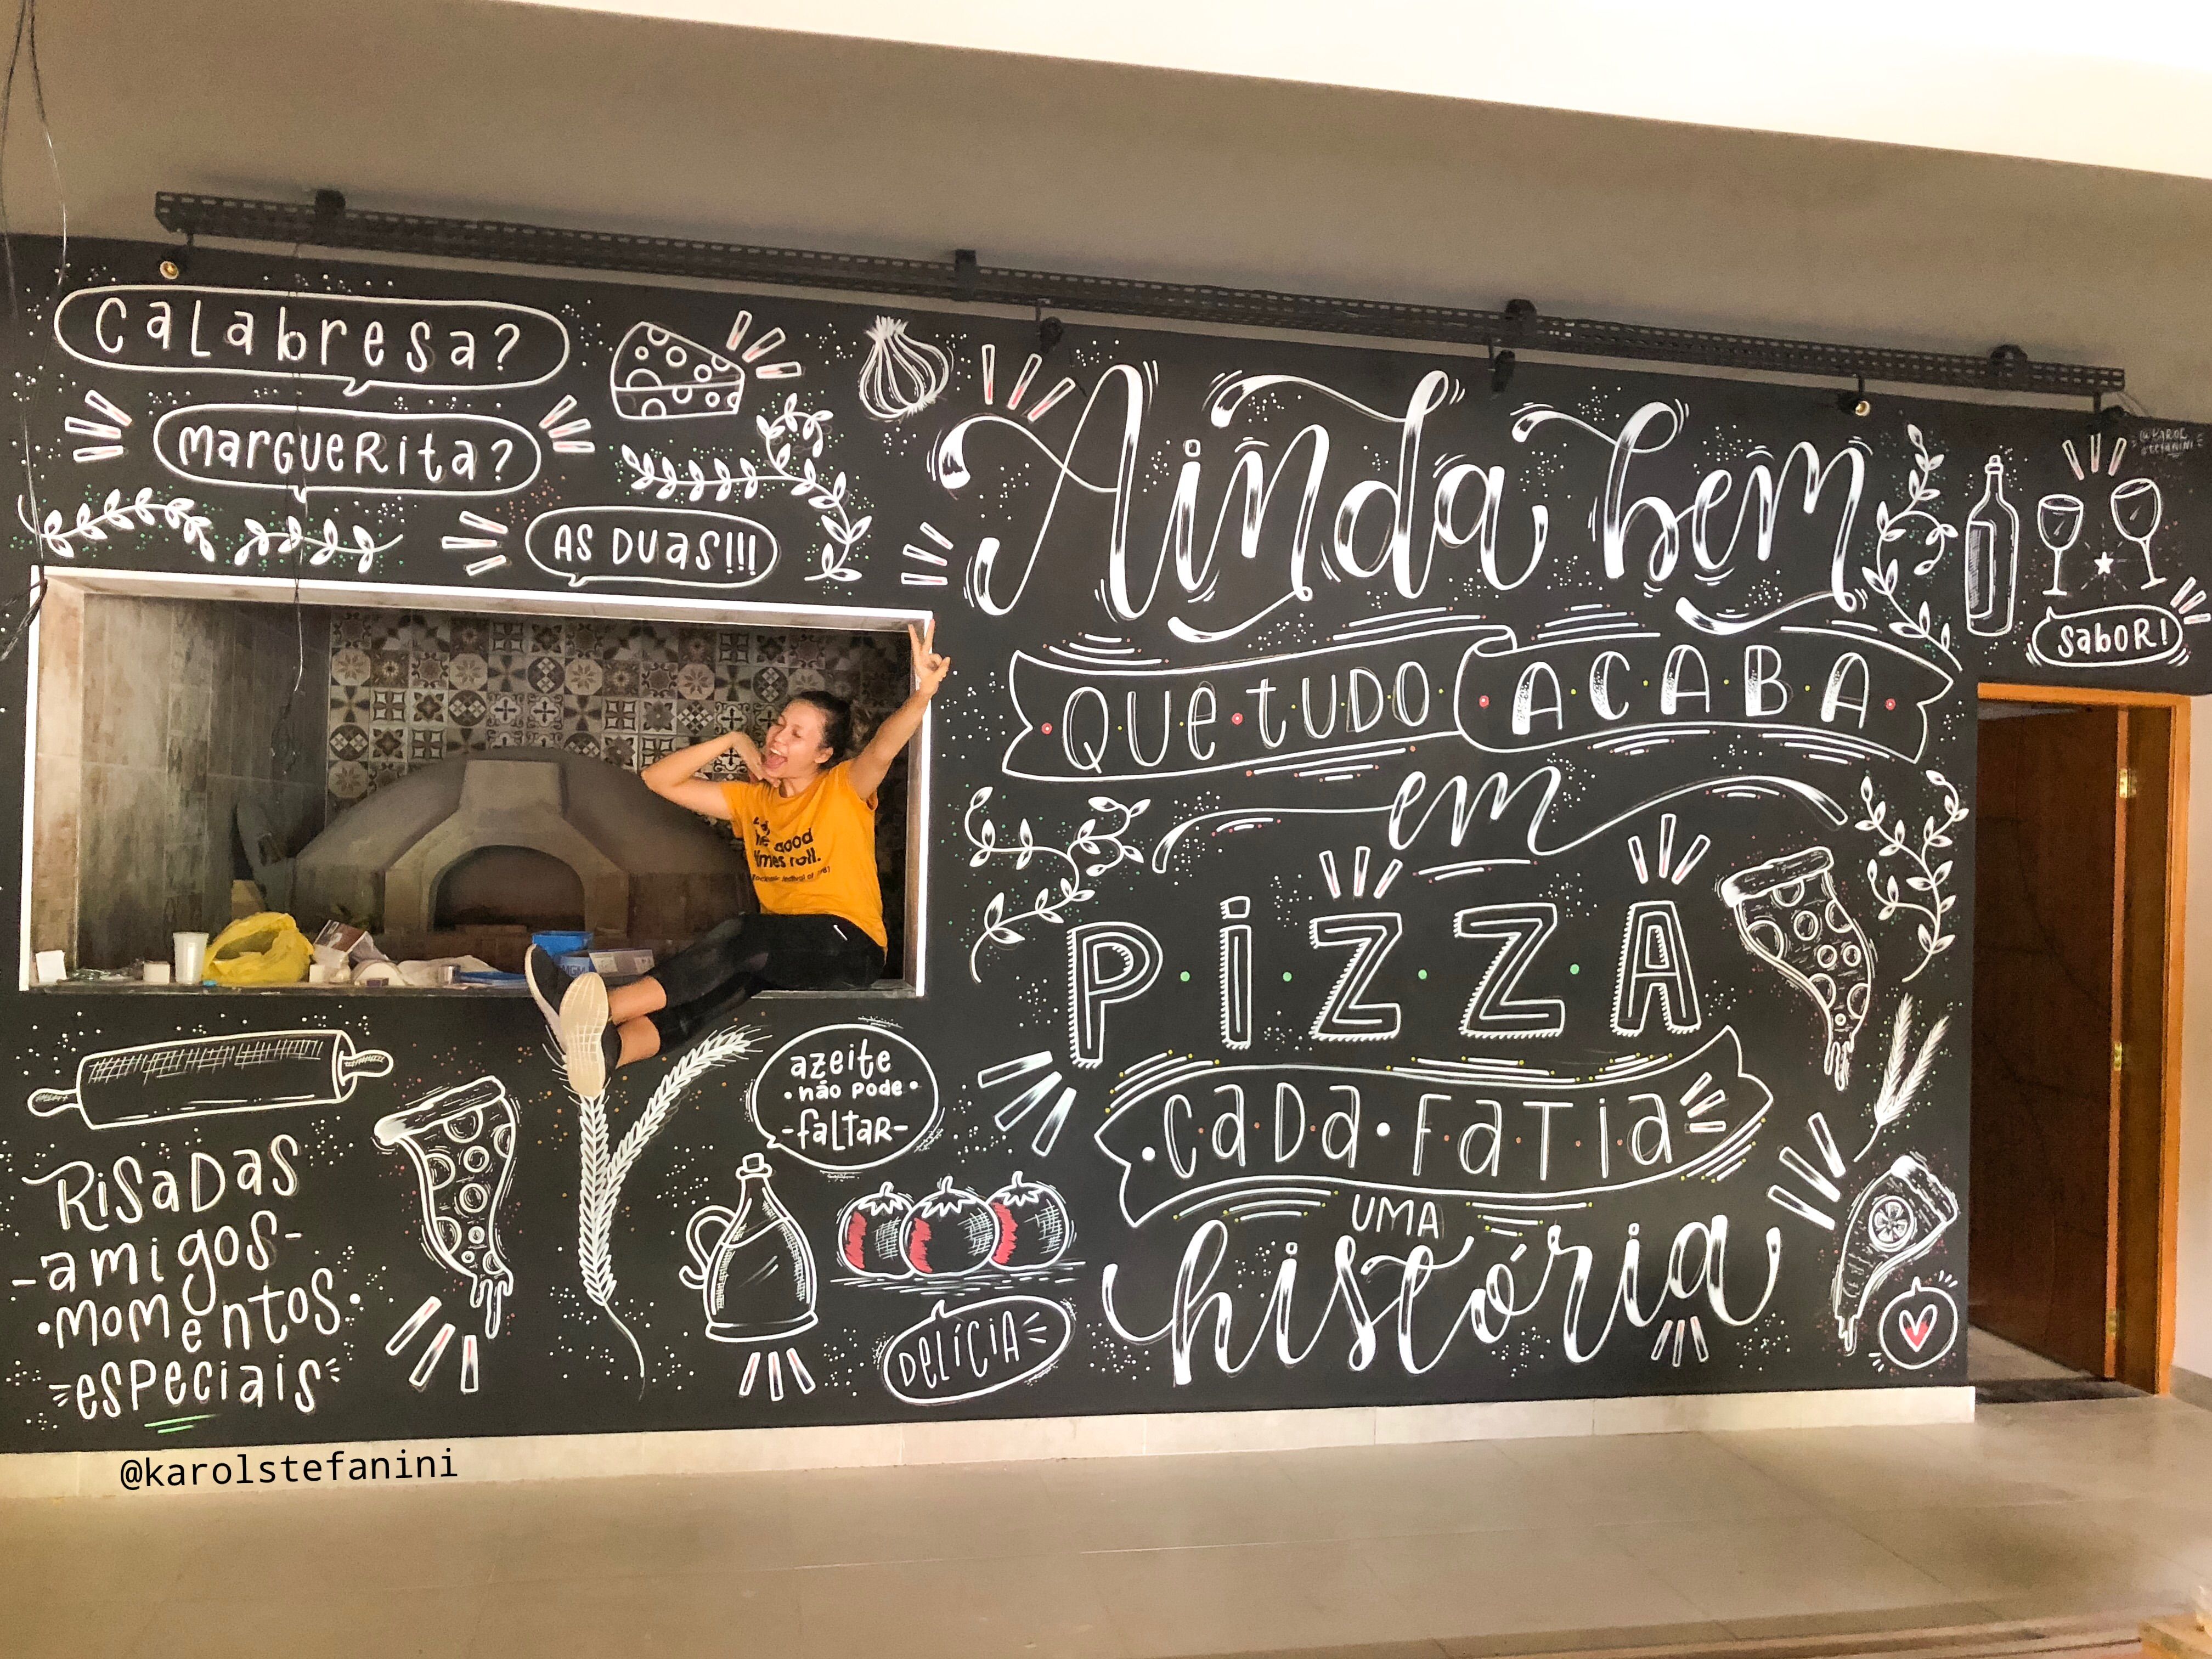 Calabresa?
Marguerita?
As duas!!!
Ainda bem
que tudo acaba
em
pizza
cada fatia
uma
história
@karol
stefanini
Sabor!
he good
imes roll.
Risadas
-amigos-
•momentos•
especiais
azeite
•não pode•
-faltar-
Delícia
@karolstefanini